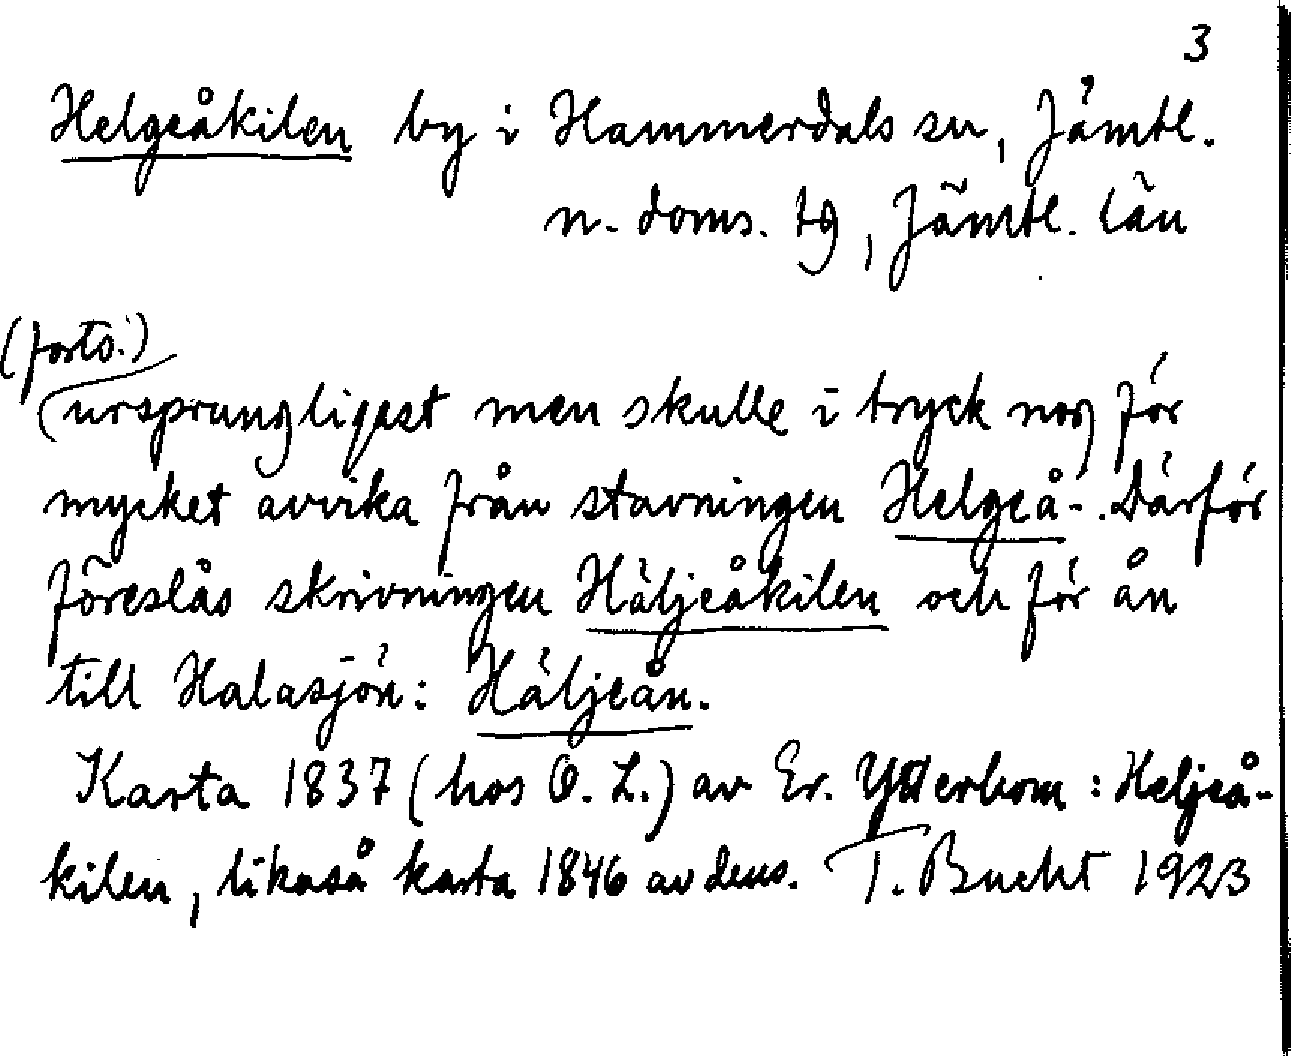 3
Helgeåkilen by i Hammerdals sn, Jämtl.
n. doms. tg, Jämtl. län
(forts.)
ursprungligast men skulle i tryck nog för
mycket avvika från stavningen Helgeå-. Därför
föreslås skrivningen Häljeåkilen och för ån
till Halasjön: Häljeån.
Karta 1837 (hos O. L.) av Er. Ytterbom: Heljeå-
kilen, likaså karta 1846 av dens. T. Bucht 1923